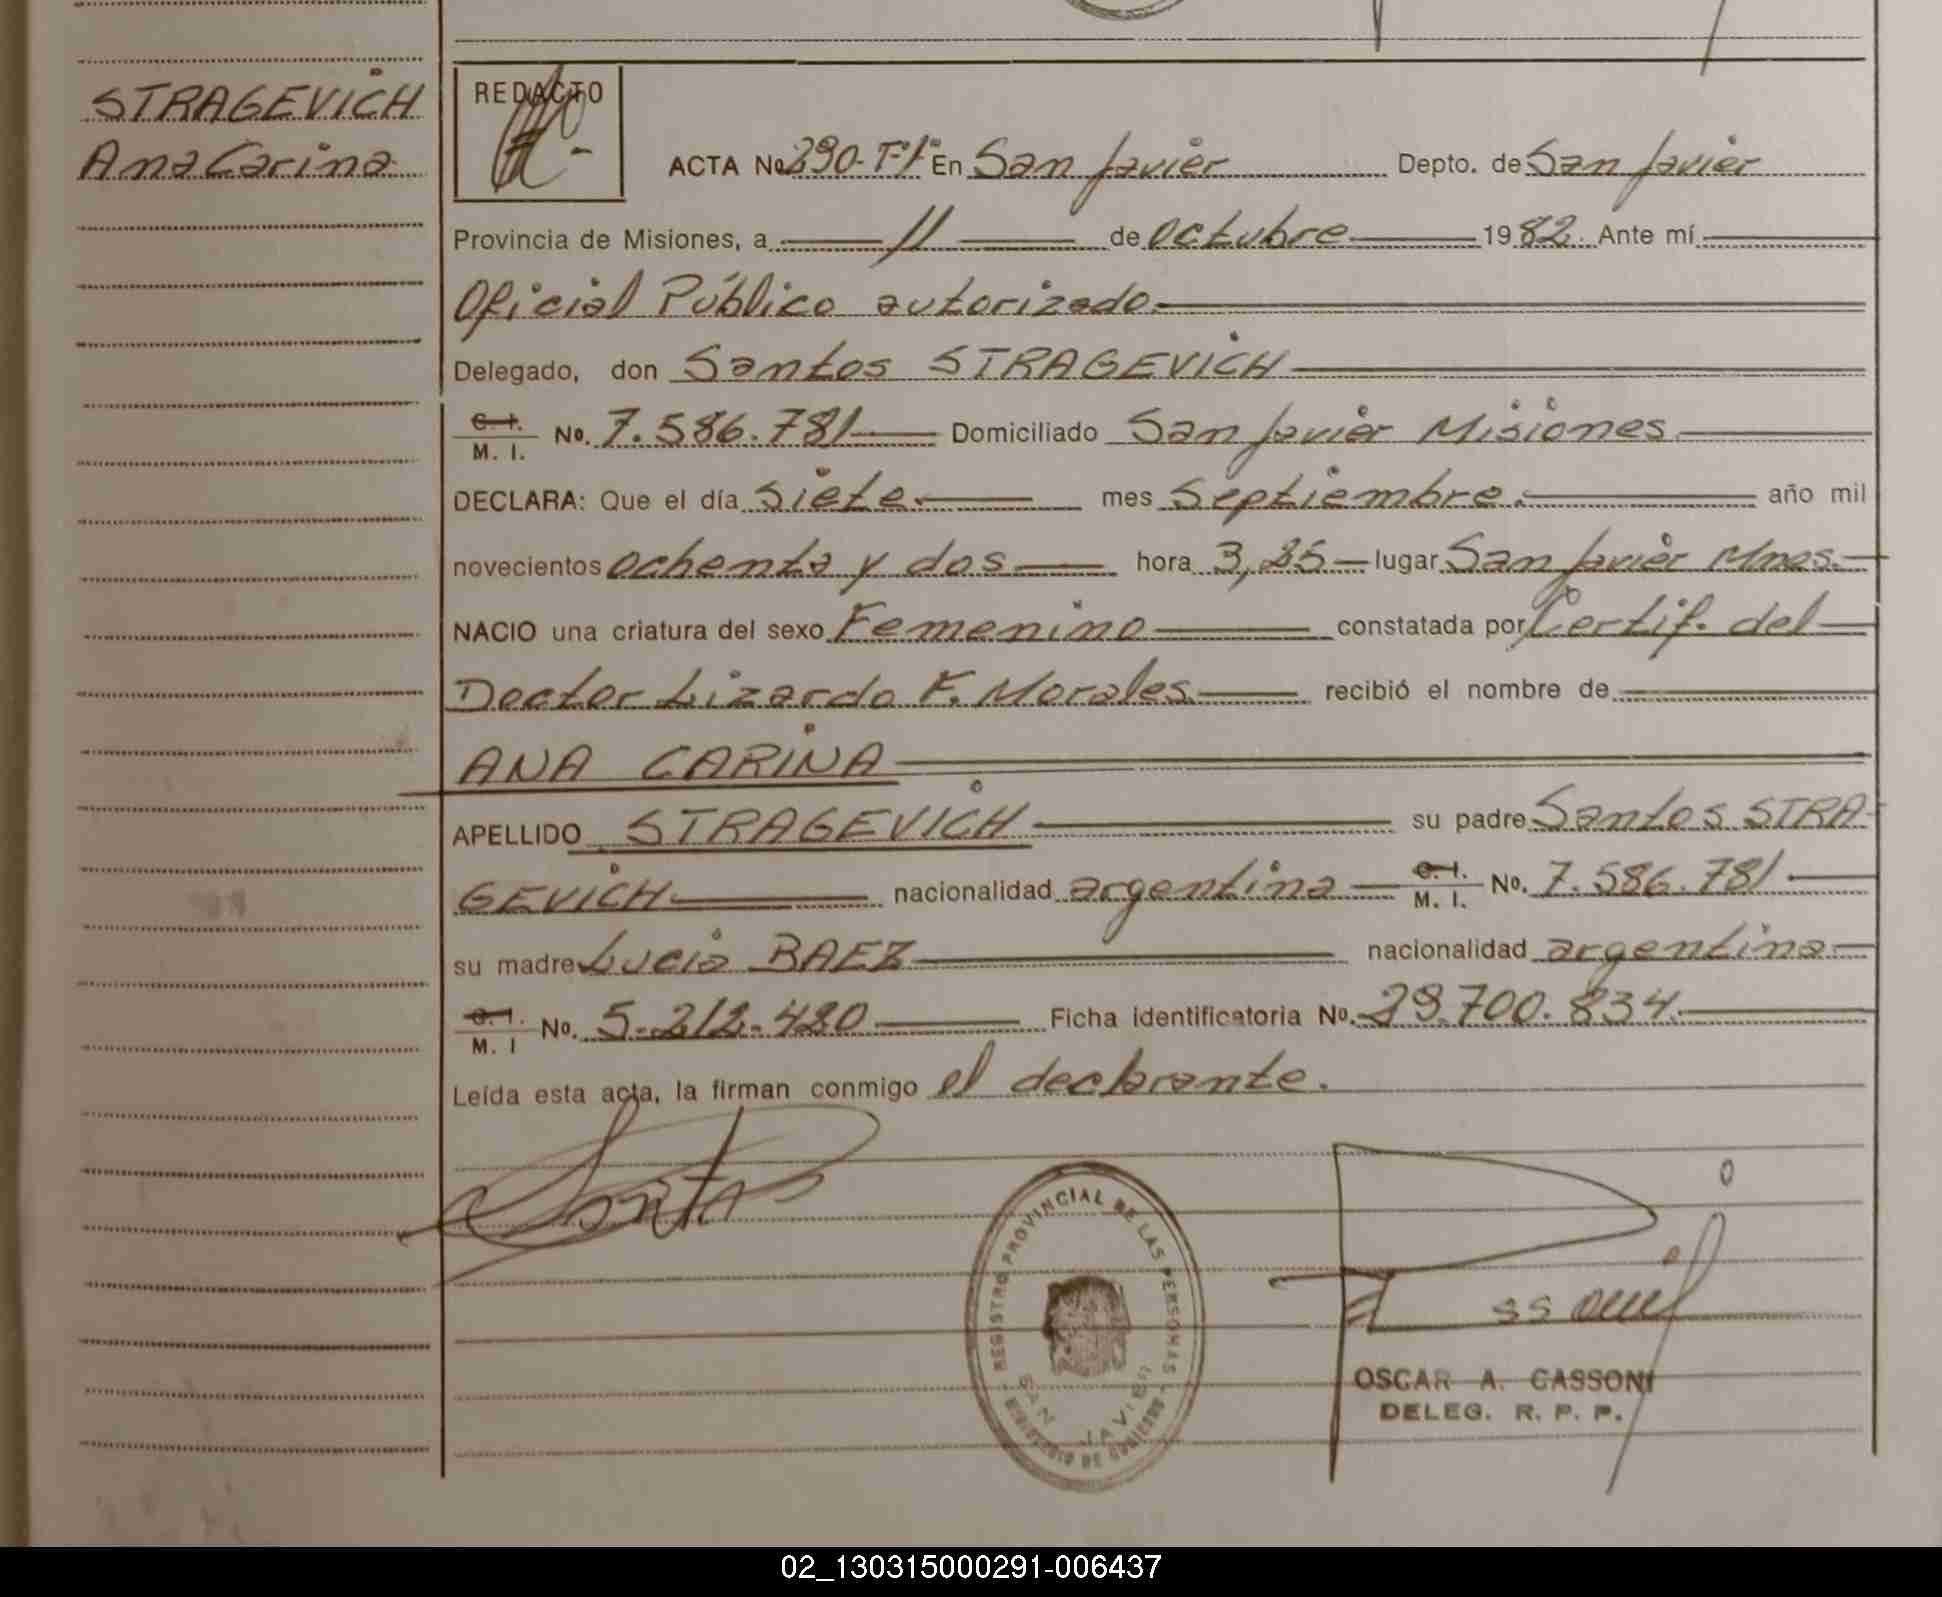 STRAGEVICH
Ana Carina
REDACTO
ACTA No. 290-Tº1º En San Javier Depto. de San Javier
Provincia de Misiones, a 11 de octubre 1982. Ante mí
Oficial Público autorizado.
Delegado, don Santos STRAGEVICH
C. I.
M. I. No. 7.586.781 Domiciliado San Javier Misiones
DECLARA: Que el día siete. mes septiembre. año mil
novecientos ochenta y dos hora 3,25 lugar San Javier Mnes.
NACIO una criatura del sexo Femenino constatada por Certif. del
Doctor Lizardo F. Morales recibió el nombre de
ANA CARINA
APELLIDO STRAGEVICH su padre Santos STRA-
GEVICH nacionalidad argentina C. I. M. I. No. 7.586.781
su madre Lucia BAEZ nacionalidad argentina
C. I.
M. I No. 5.212.420 Ficha identificatoria No. 29.700.834.
Leída esta acta, la firman conmigo el declarante.
REGISTRO PROVINCIAL DE LAS PERSONAS
MINISTERIO DE GOBIERNO
SAN JAVIER
OSCAR A. CASSONI
DELEG. R. P. P.
02_130315000291-006437